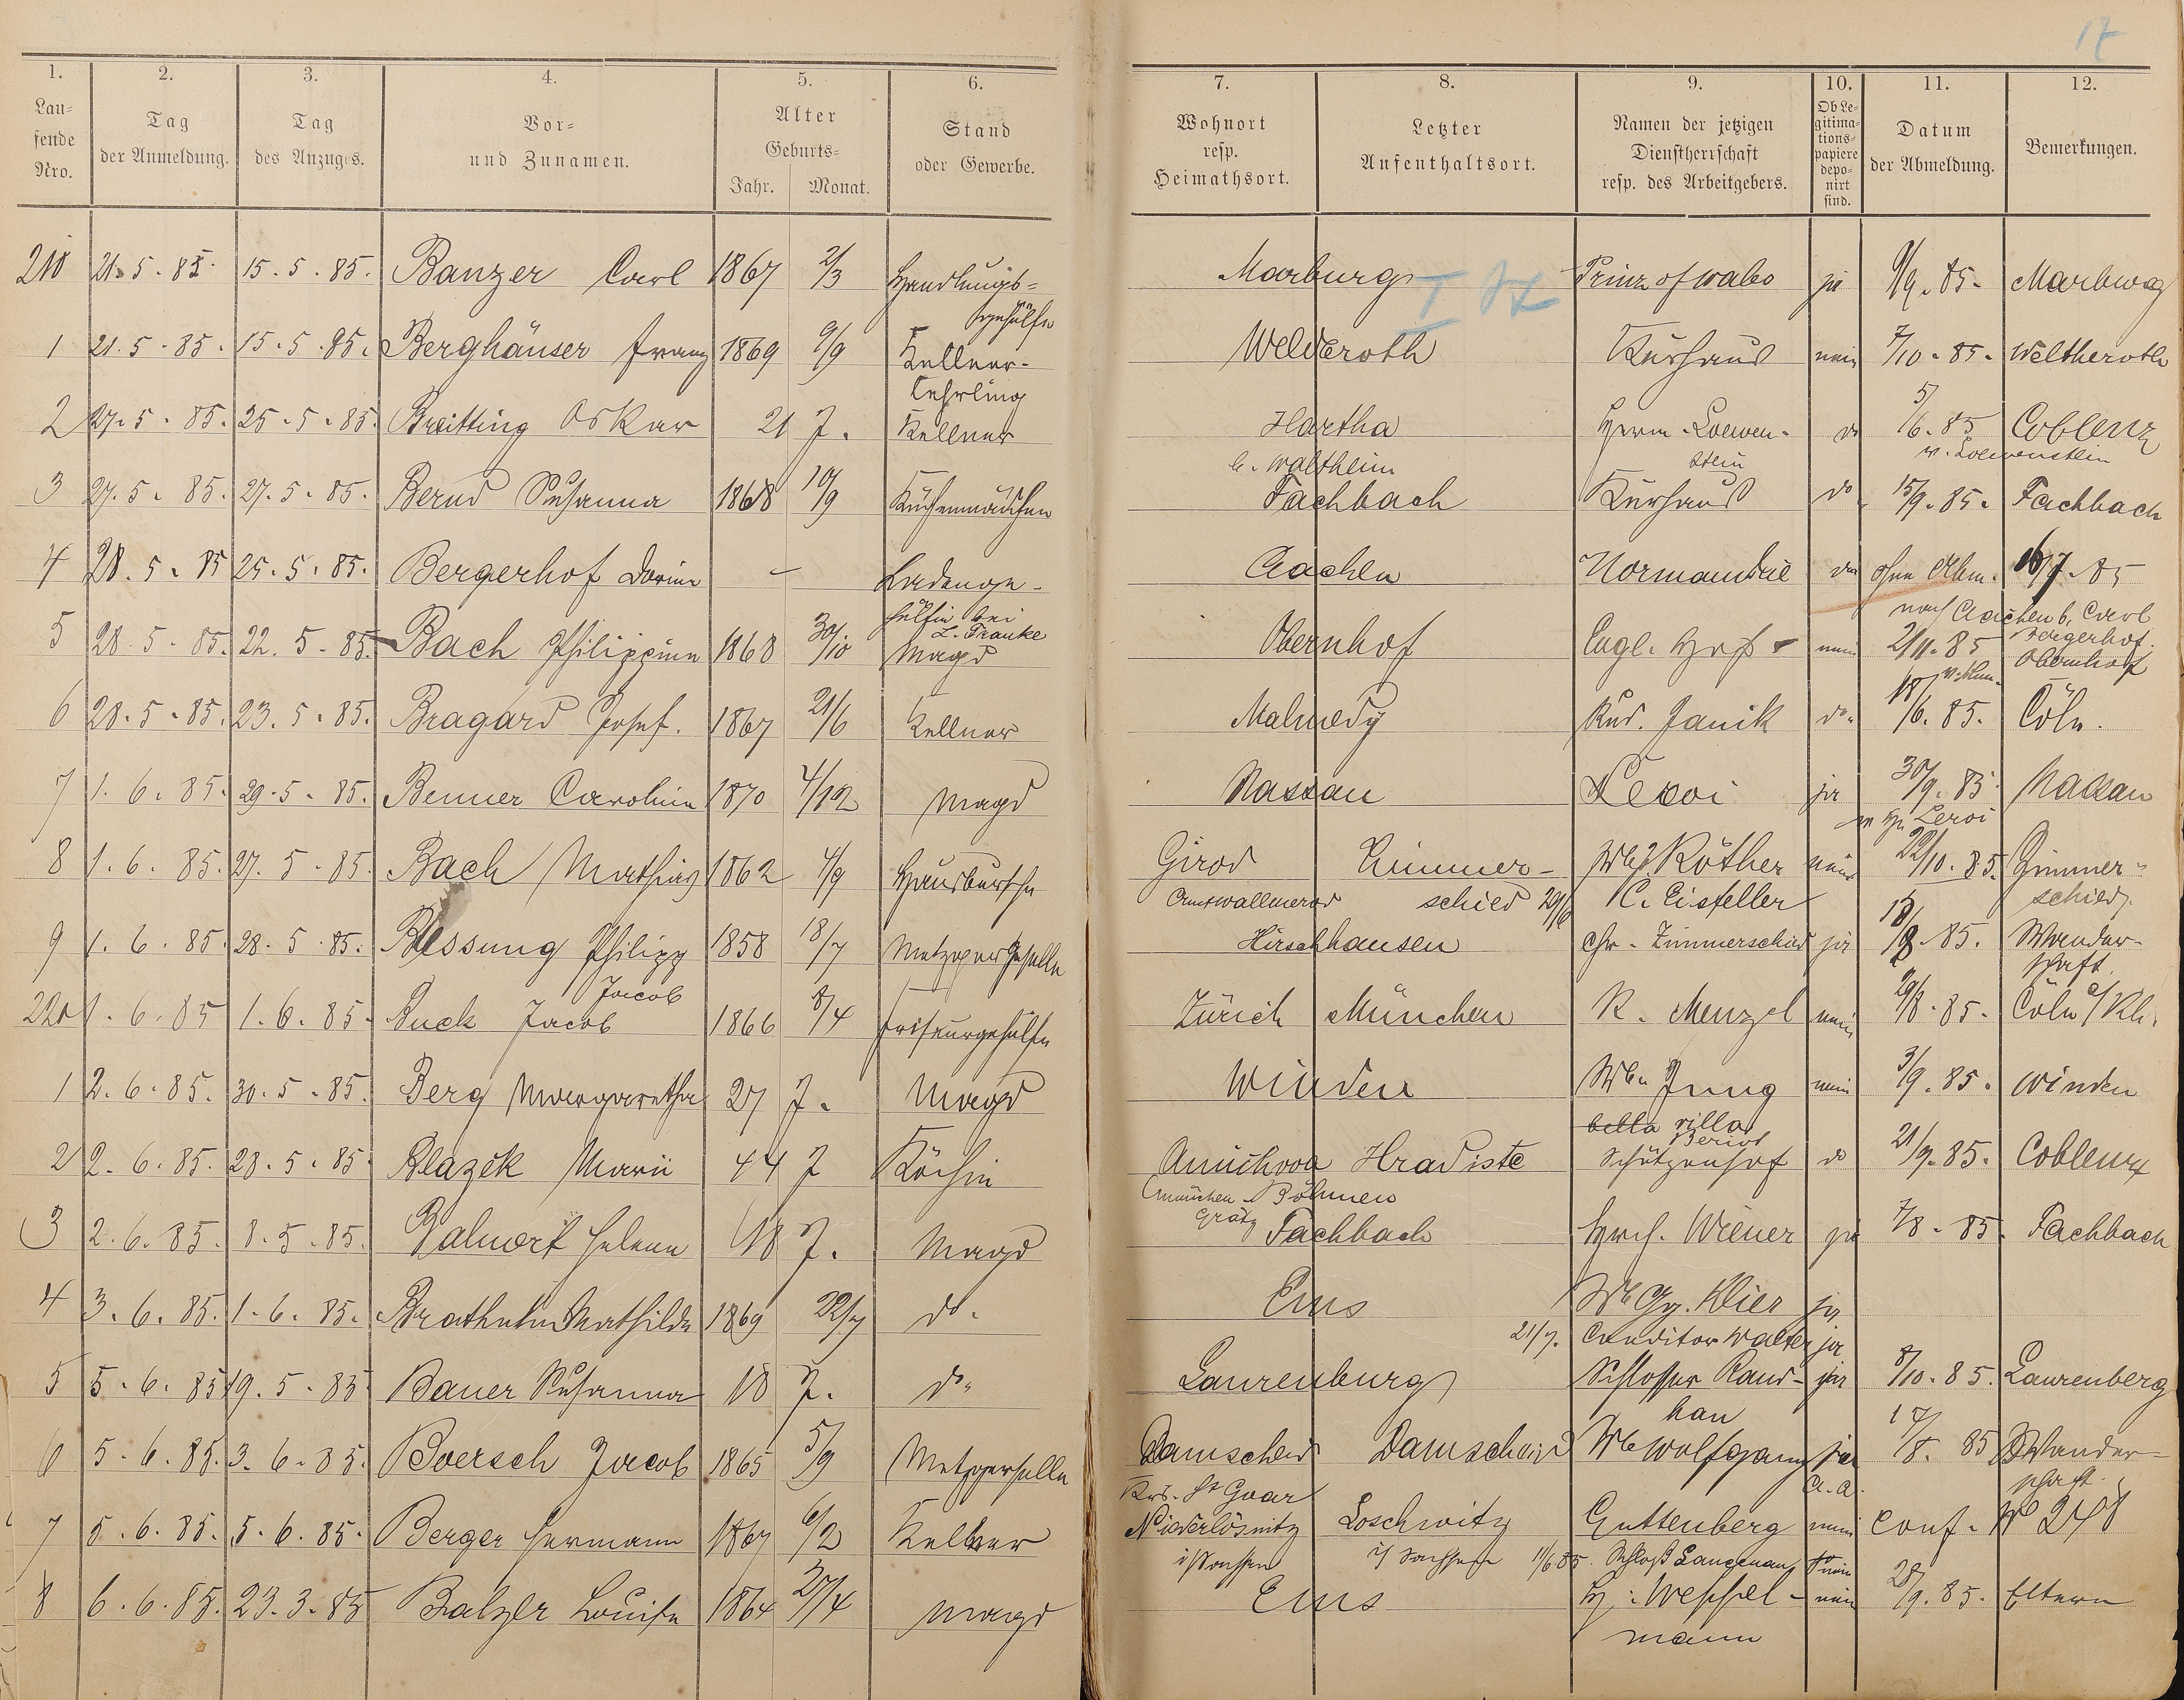 17
1. 2. 3. 4. 5. 6. 7. 8. 9. 10. 11. 12.
Lau-fende Nro. Tag der Anmeldung. Tag des Anzuges. Vor- und Zunamen. Alter Geburts- Jahr. Monat. Stand oder Gewerbe. Wohnort resp. Heimathsort. Letzter Aufenthaltsort. Namen der jetzigen Dienstherrschaft resp. des Arbeitgebers. Ob Le-gitima-tions-papiere depo-nirt sind. Datum der Abmeldung. Bemerkungen.
210 21.5.85. 15.5.85. Banzer Carl 1867 2/3 Handlungs- Marburg Prinz of wales ja 9/9.85. Marburg
gehülfe
1 21.5.85. 15.5.85. Berghäuser Franz 1869 9/9 Kellner- Welderoth Kurhaus nein 7/10.85. Weltheroth
Lehrling
2 27.5.85. 25.5.85. Breitting Oskar 21 J. Kellner Hartha Herm. Loewen- do 5/6.85 Coblenz
b. Waldheim stein v. Loewenstein
3 27.5.85. 27.5.85. Bernd Susanna 1868 10/9 Küchenmädchen Fachbach Kurhaus do 15/9.85. Fachbach
4 28.5.85 25.5.85. Bergerhof Dorine — Ladenge- Aachen Normandie do ohne Abm. 16/7.85
hülfin bei L. Franke nach Aachen b. Carl Bergerhof.
5 28.5.85. 22.5.85. Bach Philippine 1868 30/10 Magd Obernhof Engl. Hof nein 2/11.85 Obernhof
6 28.5.85. 23.5.85. Bragard Josef. 1867 21/6 Kellner Malmedy Rud. Janik do. 18/6.85. Cöln.
7 1.6.85. 29.5.85. Benner Carolina 1870 4/12 Magd Nassau Leroi ja 30/9.85 Nassau
Leroi
8 1.6.85. 27.5.85. Bach Mathias 1862 4/9 Hausbursche Girod Zimmer- Wb. Röther nein 22/10.85. Zimmer-
Amt Wallmerod schied 29/6 C. Eisfeller schied.
9 1.6.85. 28.5.85. Blessung Philipp 1858 18/7 Metzgergeselle Hirschhausen Chr. Zimmerschied ja 13/8.85. Wander-
schaft.
Jacob
220 1.6.85 1.6.85. Buck Jacob 1866 8/4 Friseurgehülfe Zürich München R. Menzel nein 29/8.85. Cöln a/Rh.
1 2.6.85. 30.5.85. Berg Margaretha 27 J. Magd Winden Wb. Jung nein 3/9.85. Winden
bella rilla
Beriot
2 2.6.85. 28.5.85 Blazek Marie 44 J Köchin Hradiste Schützenhof do 21/9.85. Coblenz
Böhmen
Grätz
3 2.6.85. 8.5.85. Balmert Helena 18 J. Magd Fachbach Hrch. Wiener ja 7/8.85. Fachbach
4 3.6.85. 1.6.85. Mathilde 1869 22/7 do. Ems Wb Gg. Klier ja
21/7. Conditor Walter ja
5 5.6.85 19.5.85 Bauer Susanna 18 J. do. Laurenburg Schlosser Raud- ja 8/10.85. Laurenberg
han
6 5.6.85. 3.6.85. Boersch Jacob 1865 5/9 Metzgerselle Damscheid Damscheid Wb Wolfgang ja 17/8.85 Wander-
Krs. St Goar A.A. schaft.
7 5.6.85. 5.6.85. Berger Hermann 1867 6/2 Kellner Niederlösnitz Loschwitz Guttenberg nein conf. No 248
i/Sachsen i/ Sachsen 11/6 85. Schloß Langenau nein
8 6.6.85. 23.3.85 Balzer Louise 1864 27/4 Magd Ems H. Weppel- nein 28/9.85. Eltern
mann